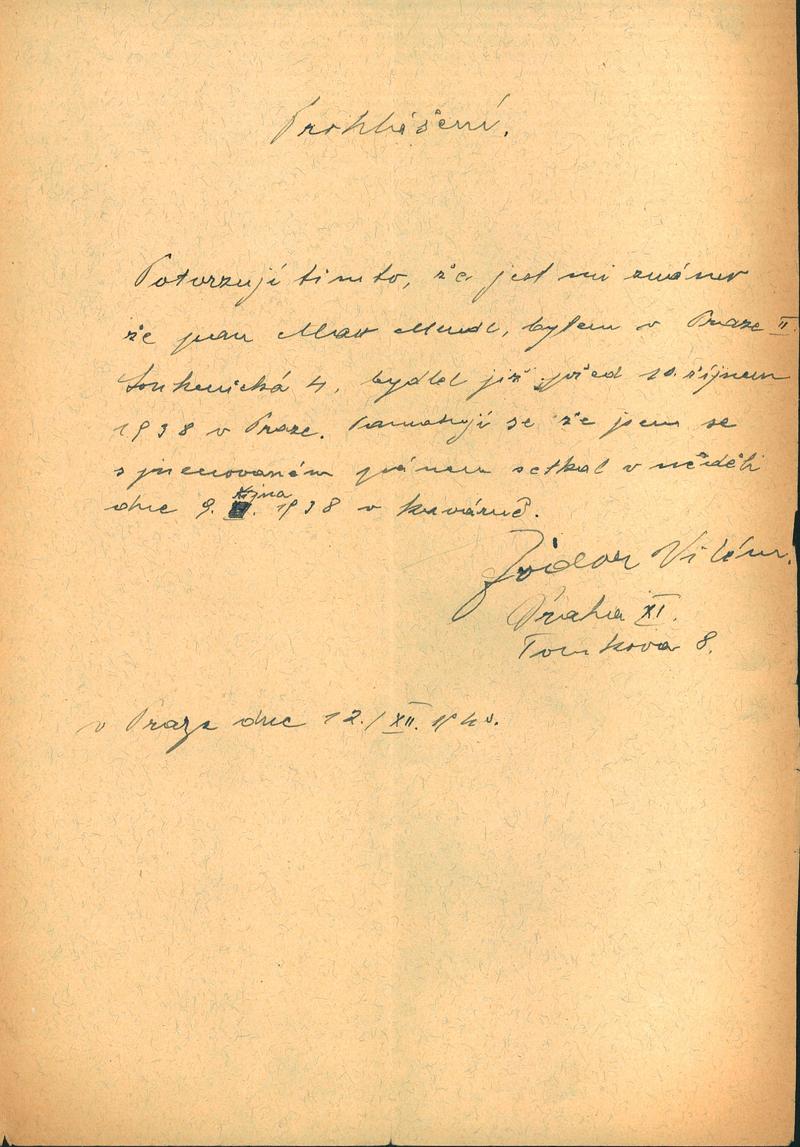 Prohlášení.
Potvrzuji tímto, že jest mi známo
že pan Max Mendl, bytem v Praze II.
Soukenická 4, bydlel již před 10. říjnem
1938 v Praze. Pamatuji se že jsem se
s jmenovaným pánem setkal v neděli
dne 9. října 1938 v kavárně.
Vilém
Praha XI.
Tomkova 8.
v Praze dne 12./XII. 1940.